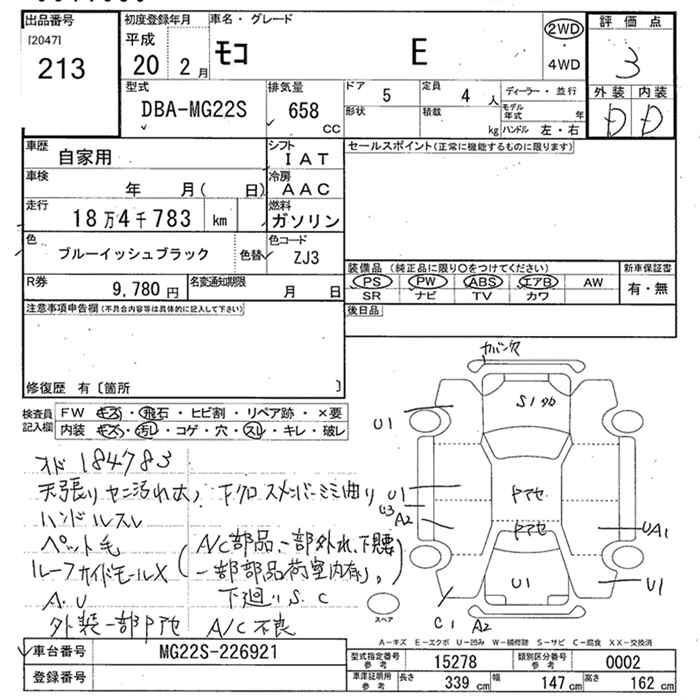 出品番号
[2047]
213
初度登録年月
平成
20 2月
車名・グレード
モコ E
2WD
・
4WD
評価点
3
外装 内装
D D
型式
DBA-MG22S
排気量
658
CC
ドア 5
定員 4 人
形状
積載 kg
ディーラー・並行
モデル年式 年
ハンドル 左・右
車歴
自家用
シフト
IAT
車検
年 月( 日)
冷房
AAC
走行
18万4千783 km
燃料
ガソリン
色
ブルーイッシュブラック
色替
色コード
ZJ3
R券
9,780円
名変通知期限
月 日
セールスポイント(正常に機能するものに限ります)
装備品 (純正品に限り○をつけてください)
PS PW ABS エアB AW
SR ナビ TV カワ
新車保証書
有・無
後日品
注意事項申告欄(不具合内容等は具体的に記入して下さい)
修復歴 有〔箇所 〕
検査員
記入欄
FW キズ・飛石・ヒビ割・リペア跡・×要
内装 キズ・汚れ・コゲ・穴・スレ・キレ・破レ
オド 184783
天張りヤニ汚れ大 下クロスメンバーミミ曲り
ハンドルスレ
ペット毛
ルーフサイドモールX
(A/C部品、一部外れ、下腰
一部部品荷室内有り。)
A.U
下廻り S.C
外装一部ドアセ A/C不良
カバンク大
S1
U1
U1
U3
A2
ドアセ
ドアセ
UA1
U1
U1
C1
A2
スペア
A-キズ E-エクボ U-凹み W-補修跡 S-サビ C-腐食 XX-交換済
車台番号
MG22S-226921
登録番号
型式指定番号
参考
15278
類別区分番号
参考
0002
車庫証明用
参考
長さ 339 cm
幅 147 cm
高さ 162 cm